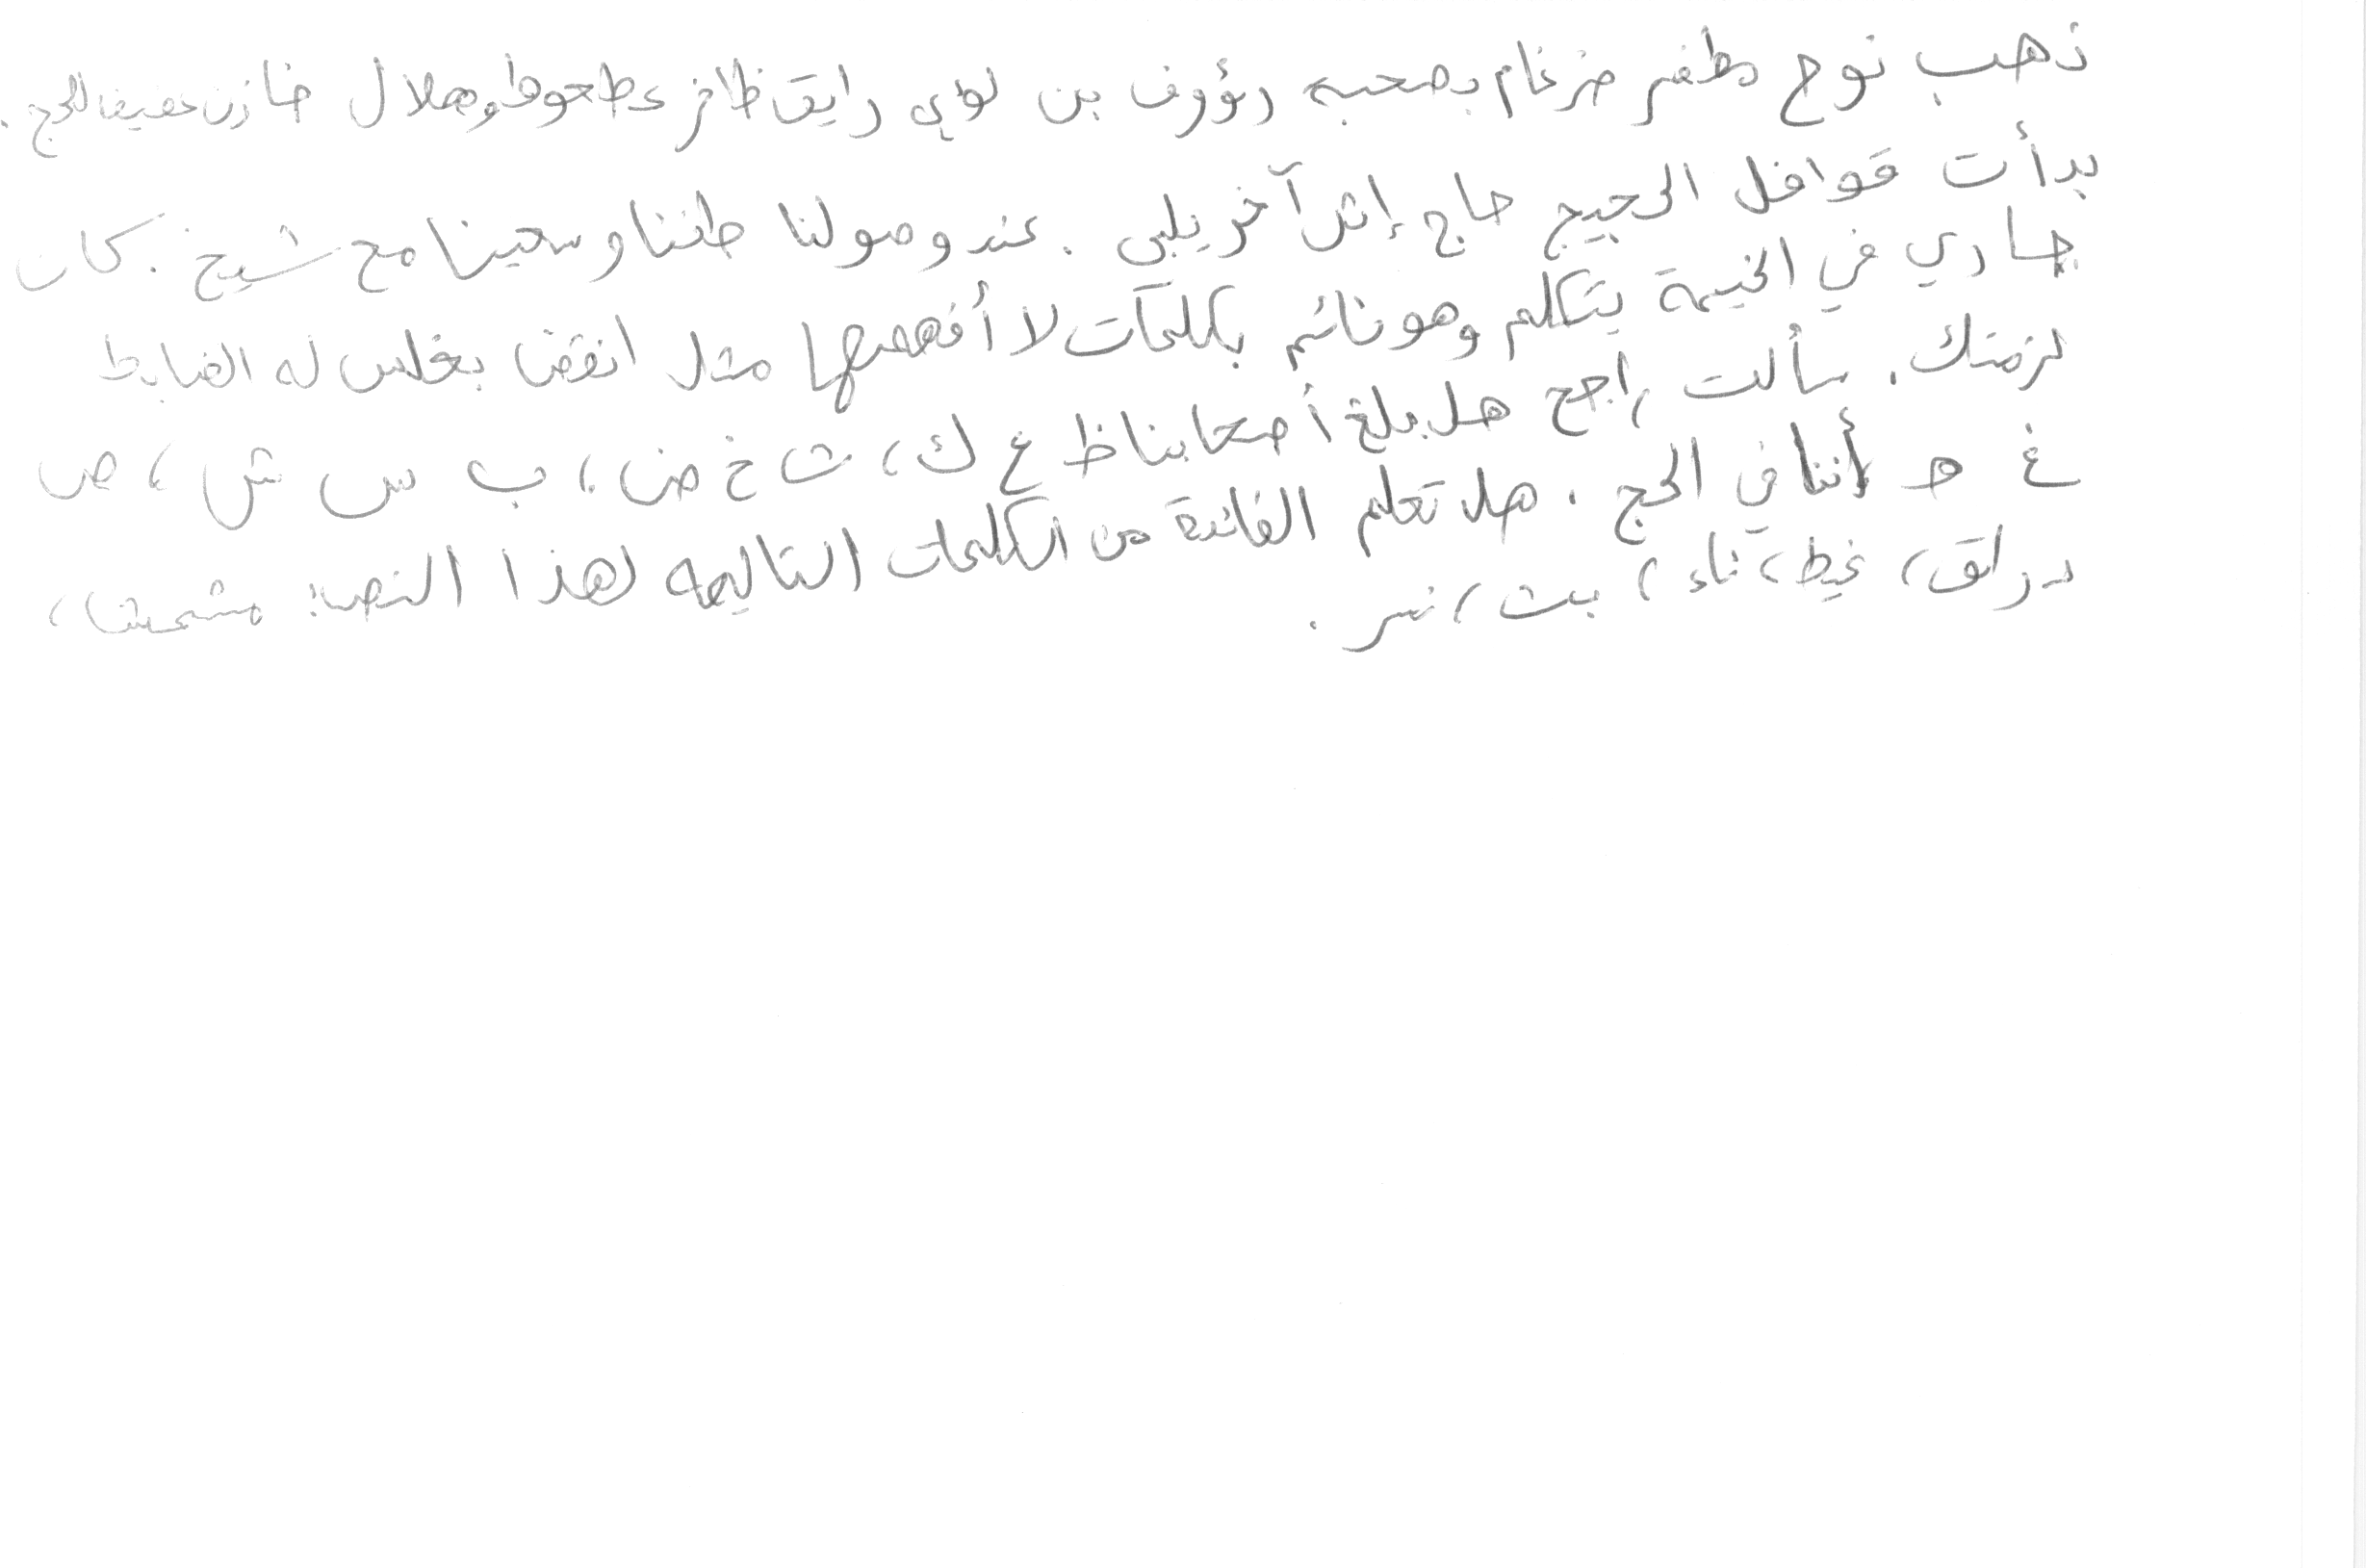 ذهب نوح مظفر ضرغام بصحبه رؤوف بن لؤي رايق ظافر عطعوط وهلال خازن عفيف للحج.
بدأت قوافل الحجيج حاج إثل آخر يلبي. عند وصولنا طفنا وسعينا مع شيخ. كان
جاري في الخيمة يتكلم وهو نائم بكلمات لا أفهمها مثل انفض بغلس له الضابط
لزمتك. سألت راجح هل بلغ أصحابنا ظ غ ك، ث خ ض، ب س ش، ص
غ ه أننا في الحج. هل تعلم الفائدة من الكلمات التاليه لهذا النص:
دراق، غيظ، ناء، بث، نسر.